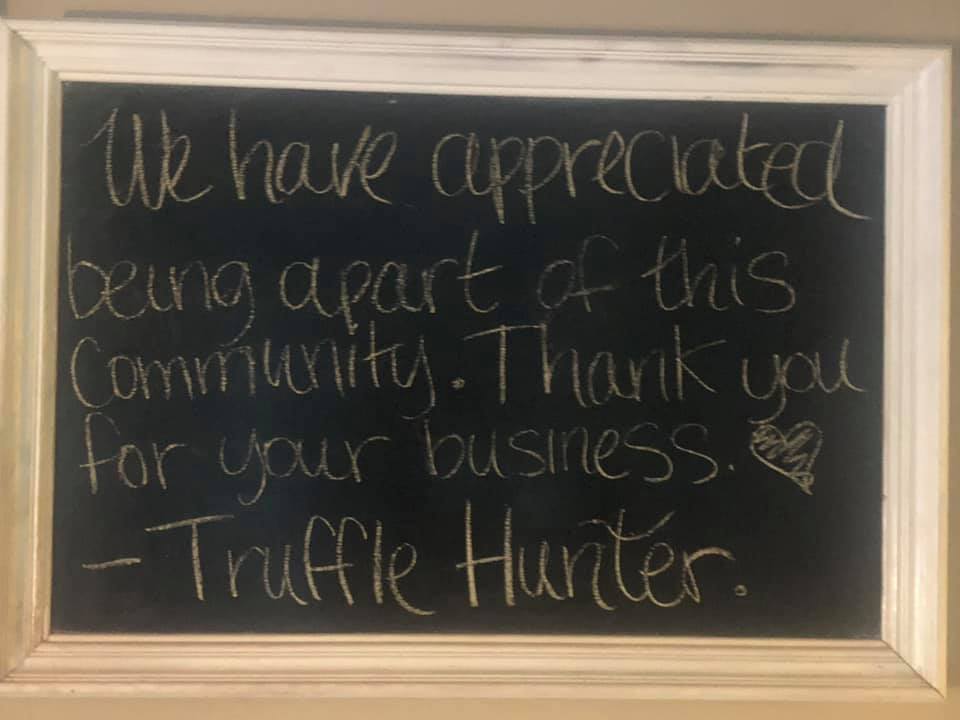 We have appreciated
being apart of this
Community. Thank you
for your business.
- Truffle Hunter.